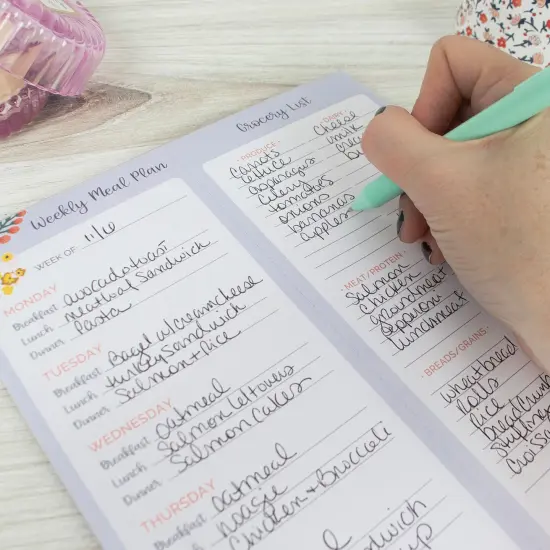 Weekly Meal Plan
WEEK OF 11/6
MONDAY
Breakfast avocado toast
Lunch meatloaf sandwich
Dinner Pasta
TUESDAY
Breakfast Bagel w/creamcheese
Lunch turkey sandwich
Dinner Salmon + rice
WEDNESDAY
Breakfast oatmeal
Lunch Salmon leftovers
Dinner Salmon cakes
THURSDAY
Breakfast oatmeal
Lunch hoagie
Dinner Chicken + broccoli
Grocery List
PRODUCE
carrots
lettuce
asparagus
celery
tomatoes
onions
bananas
apples
DAIRY
cheese
milk
MEAT/PROTEIN
Salmon
Chicken
ground meat
pepperoni
lunchmeat
BREADS/GRAINS
wheat bread
rolls
rice